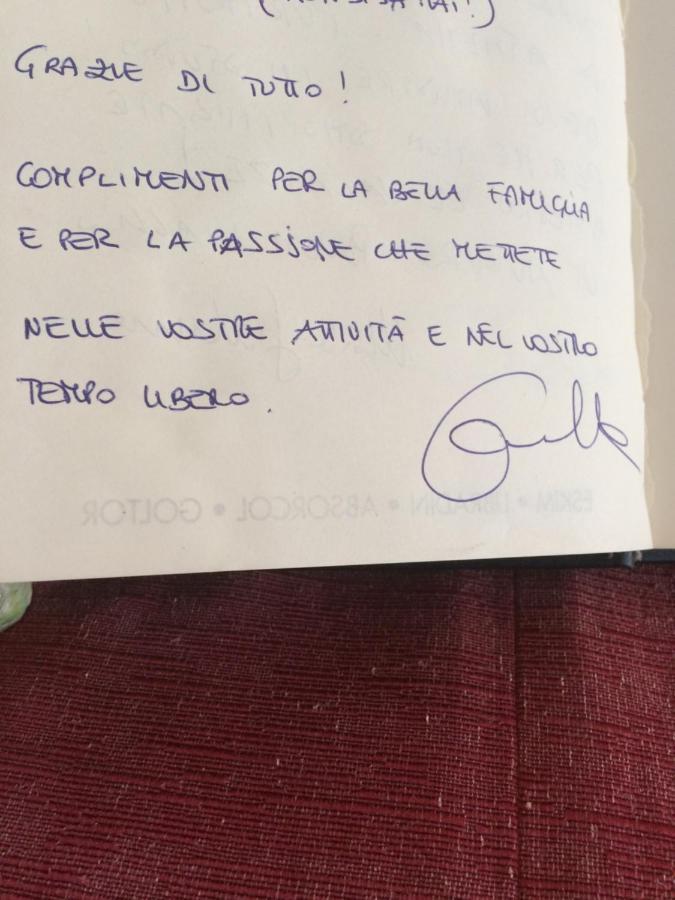 GRAZIE DI TUTTO!
COMPLIMENTI PER LA BELLA FAMIGLIA
E PER LA PASSIONE CHE METTETE
NELLE VOSTRE ATTIVITÀ E NEL VOSTRO
TEMPO LIBERO.
ESKIM • LIBRADIN • ABSORCOL • GOLTOR